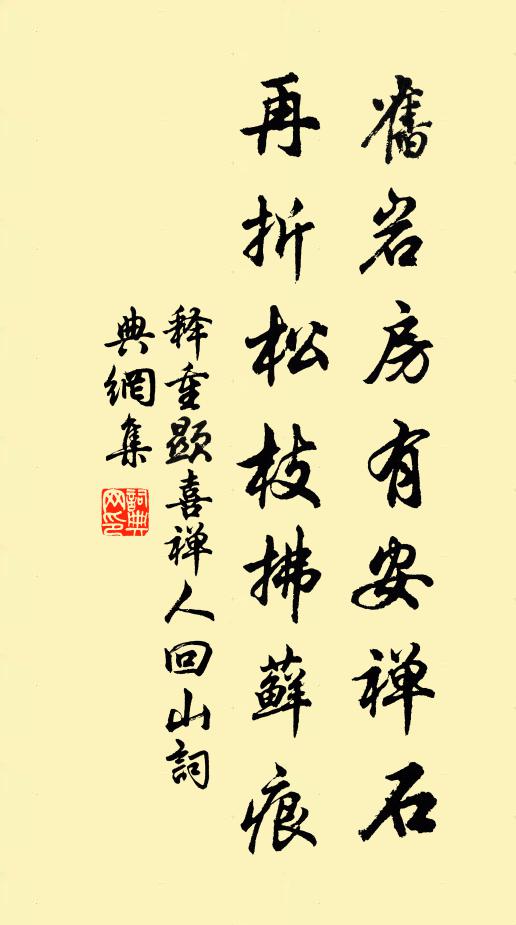 舊岩房有安禅石
再折松枝拂蘚痕
释重顯喜禅人回山詞
典網集
詞典
网印